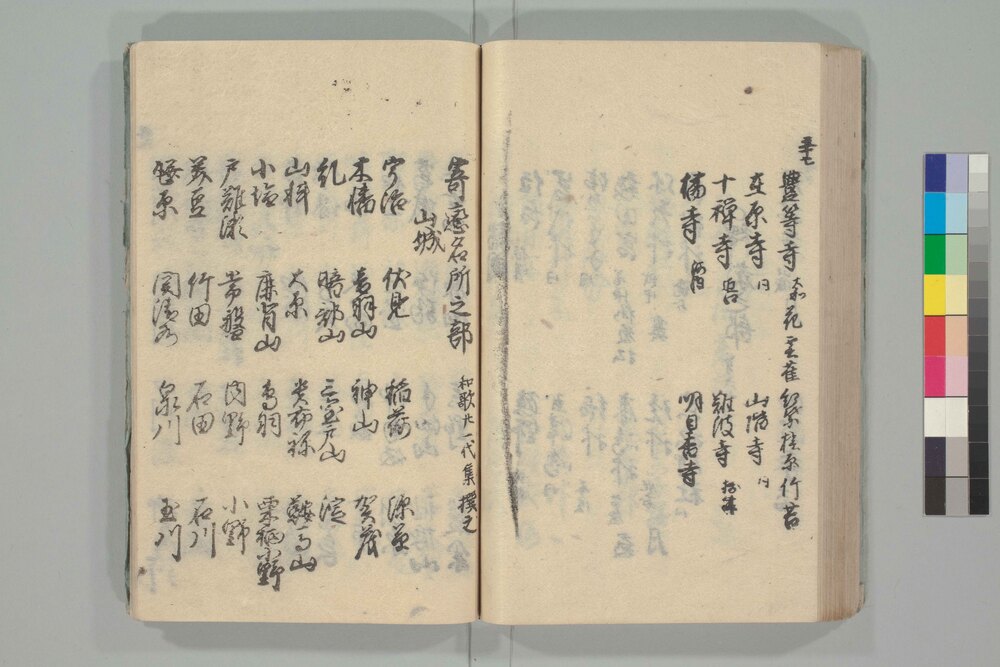 豊等寺 大和 花 雲雀 紫 桂 原 竹 苔
在原寺 同 山階寺 同
十禅寺 難波寺 摂津
橘寺 明日香寺
寄恋名所之部 和歌廿一代集撰之
山城
宇治 伏見 稲荷 深草
木幡 音羽山 神山 賀茂
糺 暗部山 淀
山科 大原 鞍馬山
小塩 鹿背山 鳥羽 栗栖小野
戸難瀬 常盤 内野 小野
美豆 竹田 石田 石川
関清水 泉川 玉川